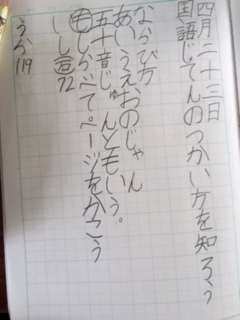 四月二十三日
国語じてんのつかい方を知ろう
ならび方
あいうえおのじゃん
五十音じゅんともいう。
もしらべてページをかこう
しし 72
うか119